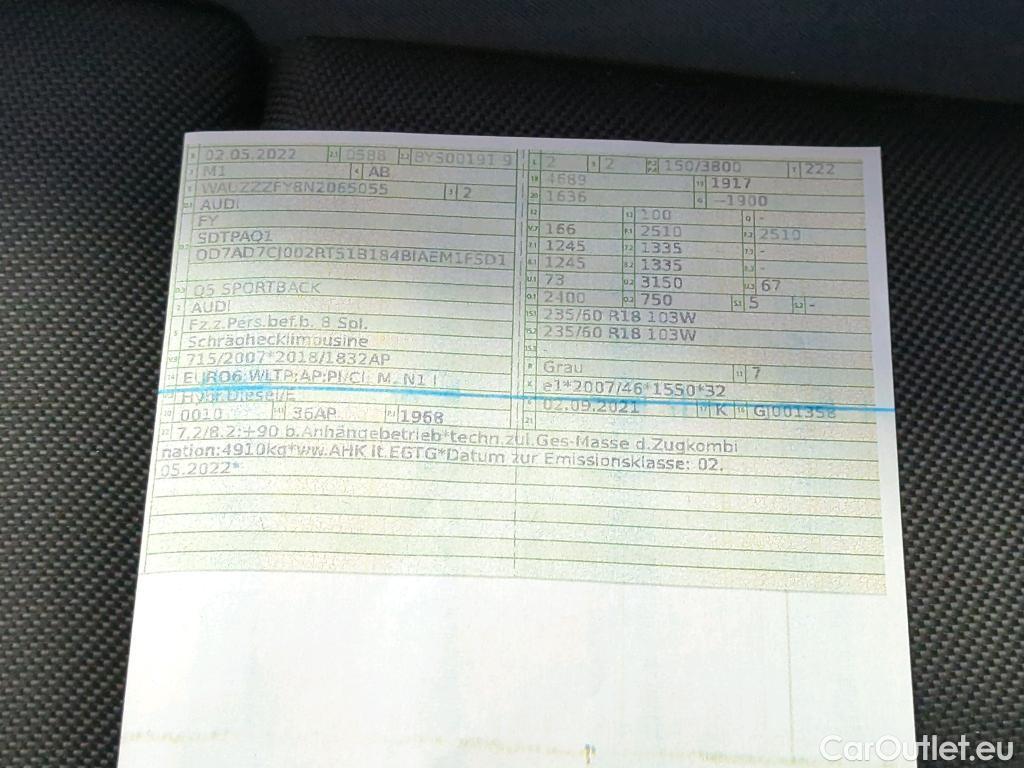 B 02.05.2022 2.1 0588 2.2 BYS00191 9
J M1 4 AB
E WAUZZZFY8N2065055 3 2
D.1 AUDI
FY
D.2 SDTPAQ1
QD7AD7CJ002RT51B184BIAEM1FSD1
D.3 Q5 SPORTBACK
2 AUDI
5 Fz.z.Pers.bef.b. 8 Spl.
Schräghecklimousine
V.9 715/2007*2018/1832AP
14 EURO6;WLTP;AP;PI/CI; M, N1 I
P.3 Hybr.Diesel/E
10 0010 14.1 36AP P.1 1968
L 2 9 2 P.2 P.4 150/3800 T 222
18 4689 19 1917
20 1636 G —1900
12 13 100 Q -
V.7 166 F.1 2510 F.2 2510
7.1 1245 7.2 1335 7.3 -
8.1 1245 8.2 1335 8.3 -
U.1 73 U.2 3150 U.3 67
O.1 2400 O.2 750 S.1 5 S.2 -
15.1 235/60 R18 103W
15.2 235/60 R18 103W
15.3 -
R Grau 11 7
K e1*2007/46*1550*32
6 02.09.2021 17 K 16 GJ001358
21
22 7.2/8.2:+90 b.Anhängebetrieb*techn.zul.Ges-Masse d.Zugkombi
nation:4910kg*ww.AHK lt.EGTG*Datum zur Emissionsklasse: 02.
05.2022*
CarOutlet.eu